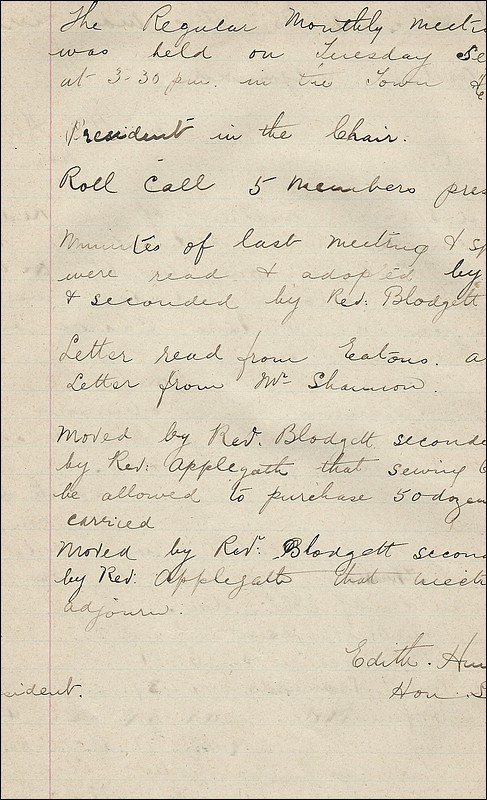 The Regular Monthly meeti
was held on Tuesday Se
at 3-30 p.m. in the Town
President in the Chair.
Roll Call 5 Members pres
Minutes of last meeting & sp
were read & adopted by
& seconded by Rev: Blodgett
Letter read from Eatons. a
Letter from Mr Shannon.
Moved by Rev. Blodgett seconde
by Rev: Applegath that sewing
be allowed to purchase 50 dozen
carried
Moved by Rev: Blodgett secon
by Rev: Applegath that meeti
adjourn.
Edith. Hu
sident.
Hon. S